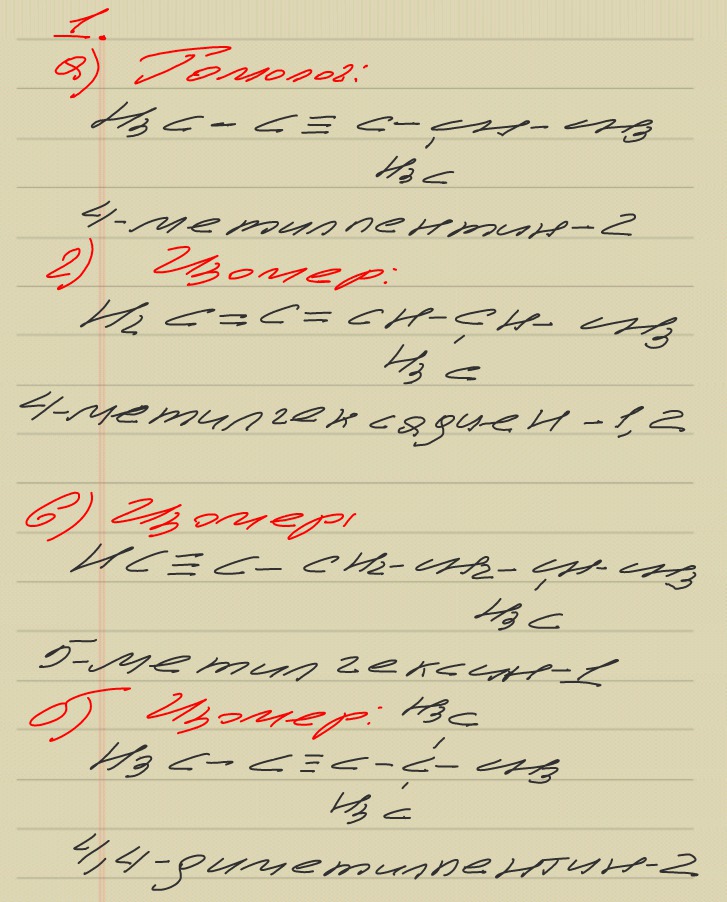 1.
а) Гомолог:
H₃C – C ≡ C – CH – CH₃
H₃C
4-метилпентин-2
г) Изомер:
H₂C = C = CH – CH – CH₃
H₃C
4-метилгексадиен-1,2
в) Изомер:
HC ≡ C – CH₂ – CH₂ – CH – CH₃
H₃C
5-метилгексин-1
б) Изомер: H₃C
H₃C – C ≡ C – C – CH₃
H₃C
4,4-диметилпентин-2